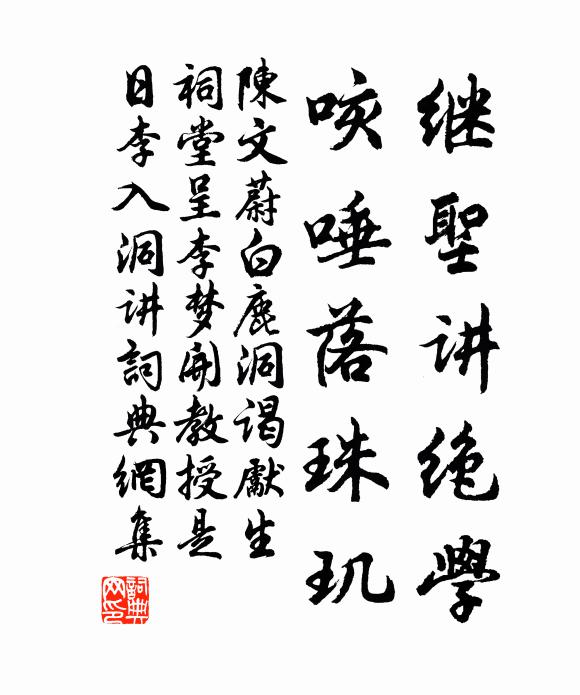 继聖讲绝學
咳唾落珠玑
陳文蔚白鹿洞谒獻生
祠堂呈李梦開教授是
日李入洞讲詞典網集
詞典網印